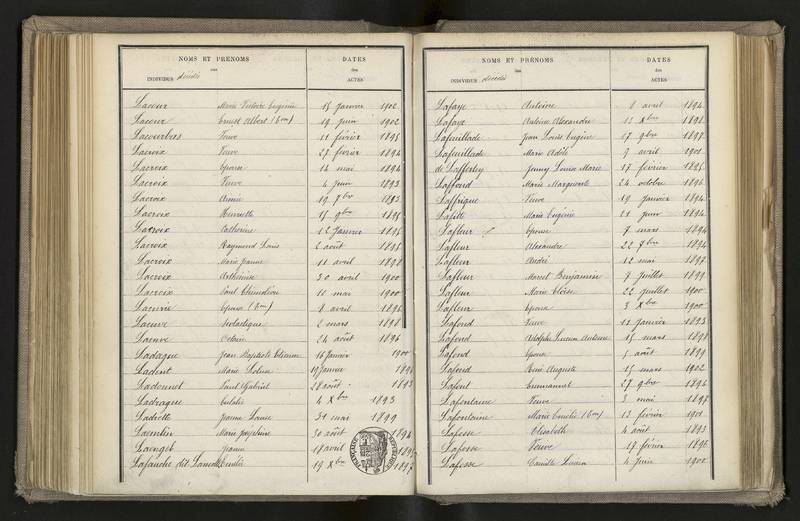 NOMS ET PRÉNOMS DATES
des des
INDIVIDUS décédés ACTES
Lacour Marie Victoire Eugénie 15 Janvier 1902
Lacour Ernest Albert 19 Juin 1902
Lacourbas Veuve 11 février 1895
Lacroix Veuve 27 février 1894
Lacroix Epouse 14 mai 1894
Lacroix Veuve 4 Juin 1893
Lacroix Aimée 19 7bre 1893
Lacroix Henriette 15 9bre 1895
Lacroix Catherine 12 Janvier 1895
Lacroix Raymond Louis 2 août 1895
Lacroix Marie Jeanne 11 avril 1898
Lacroix Arthémise 30 avril 1900
Lacroix Paul Théméléon 10 mai 1900
Epouse 8 avril 1896
Lacuve 2 mars 1898
Lacuve Octave 24 août 1896
Ladague Jean Baptiste Etienne 16 Janvier 1900
Ladent Marie 19 Janvier
Ladonnet Paul Gabriel 28 août 1893
Ladrague 4 Xbre 1893
Ladrette Jeanne Louise 31 mai 1899
Laentin Marie Joséphine 30 août 1894
Laengel 18 avril
Lafanche dit 19 Xbre 1897
NOMS ET PRÉNOMS DATES
des des
INDIVIDUS décédés ACTES
Lafaye Antoine 8 avril 1894
Lafaye Antoine Alexandre 11 Xbre 1898
Lafeuillade Jean Louis Eugène 17 9bre 1897
Lafeuillade Marie Adèle 9 avril 1901
de Lafferty Jenny Louise Marie 17 février 1896
Laffond Marie Marguerite 24 octobre 1896
Laffrique Veuve 19 Janvier 1894
Lafitte Marie Eugénie 11 Juin 1894
Lafleur Epouse 7 mars 1894
Lafleur Alexandre 22 7bre 1894
Lafleur André 12 mai 1897
Lafleur Marcel Benjamin 9 Juillet 1899
Lafleur Marie Eloïse 22 Juillet 1900
Lafleur Epouse 3 Xbre 1900
Lafond Veuve 11 Janvier 1893
Lafond Adolphe Lucien Antoine 15 mars 1898
Lafond Epouse 5 août 1899
Lafond René Auguste 15 mars 1902
Lafont Emmanuel 27 9bre 1896
Lafontaine Veuve 3 mai 1897
Lafontaine Marie Emélie 13 février 1901
Lafosse Elisabeth 4 août 1893
Lafosse Veuve 17 février 1896
Lafosse Camille Lucien 4 Juin 1900